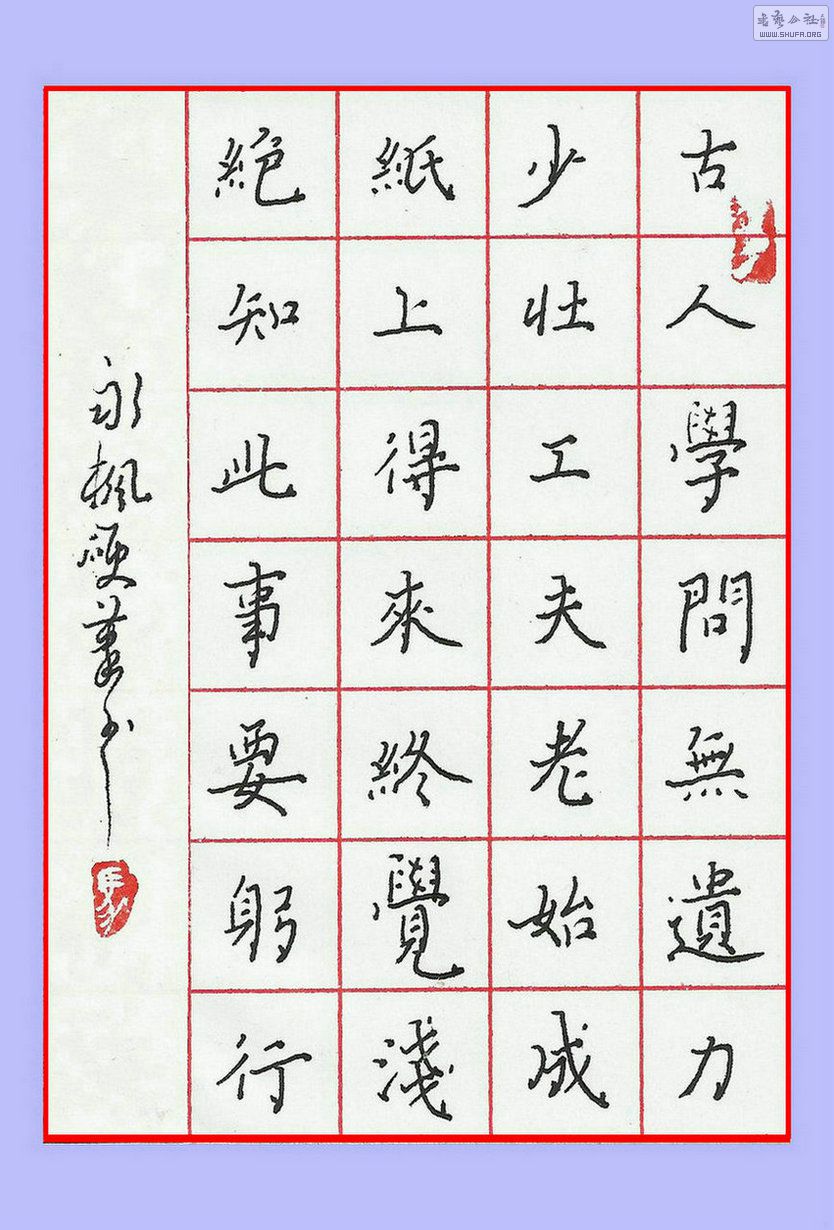 古人學問無遺力
少壯工夫老始成
紙上得來終覺淺
絕知此事要躬行
永楓硬筆書
书艺公社
WWW.SHUFA.ORG